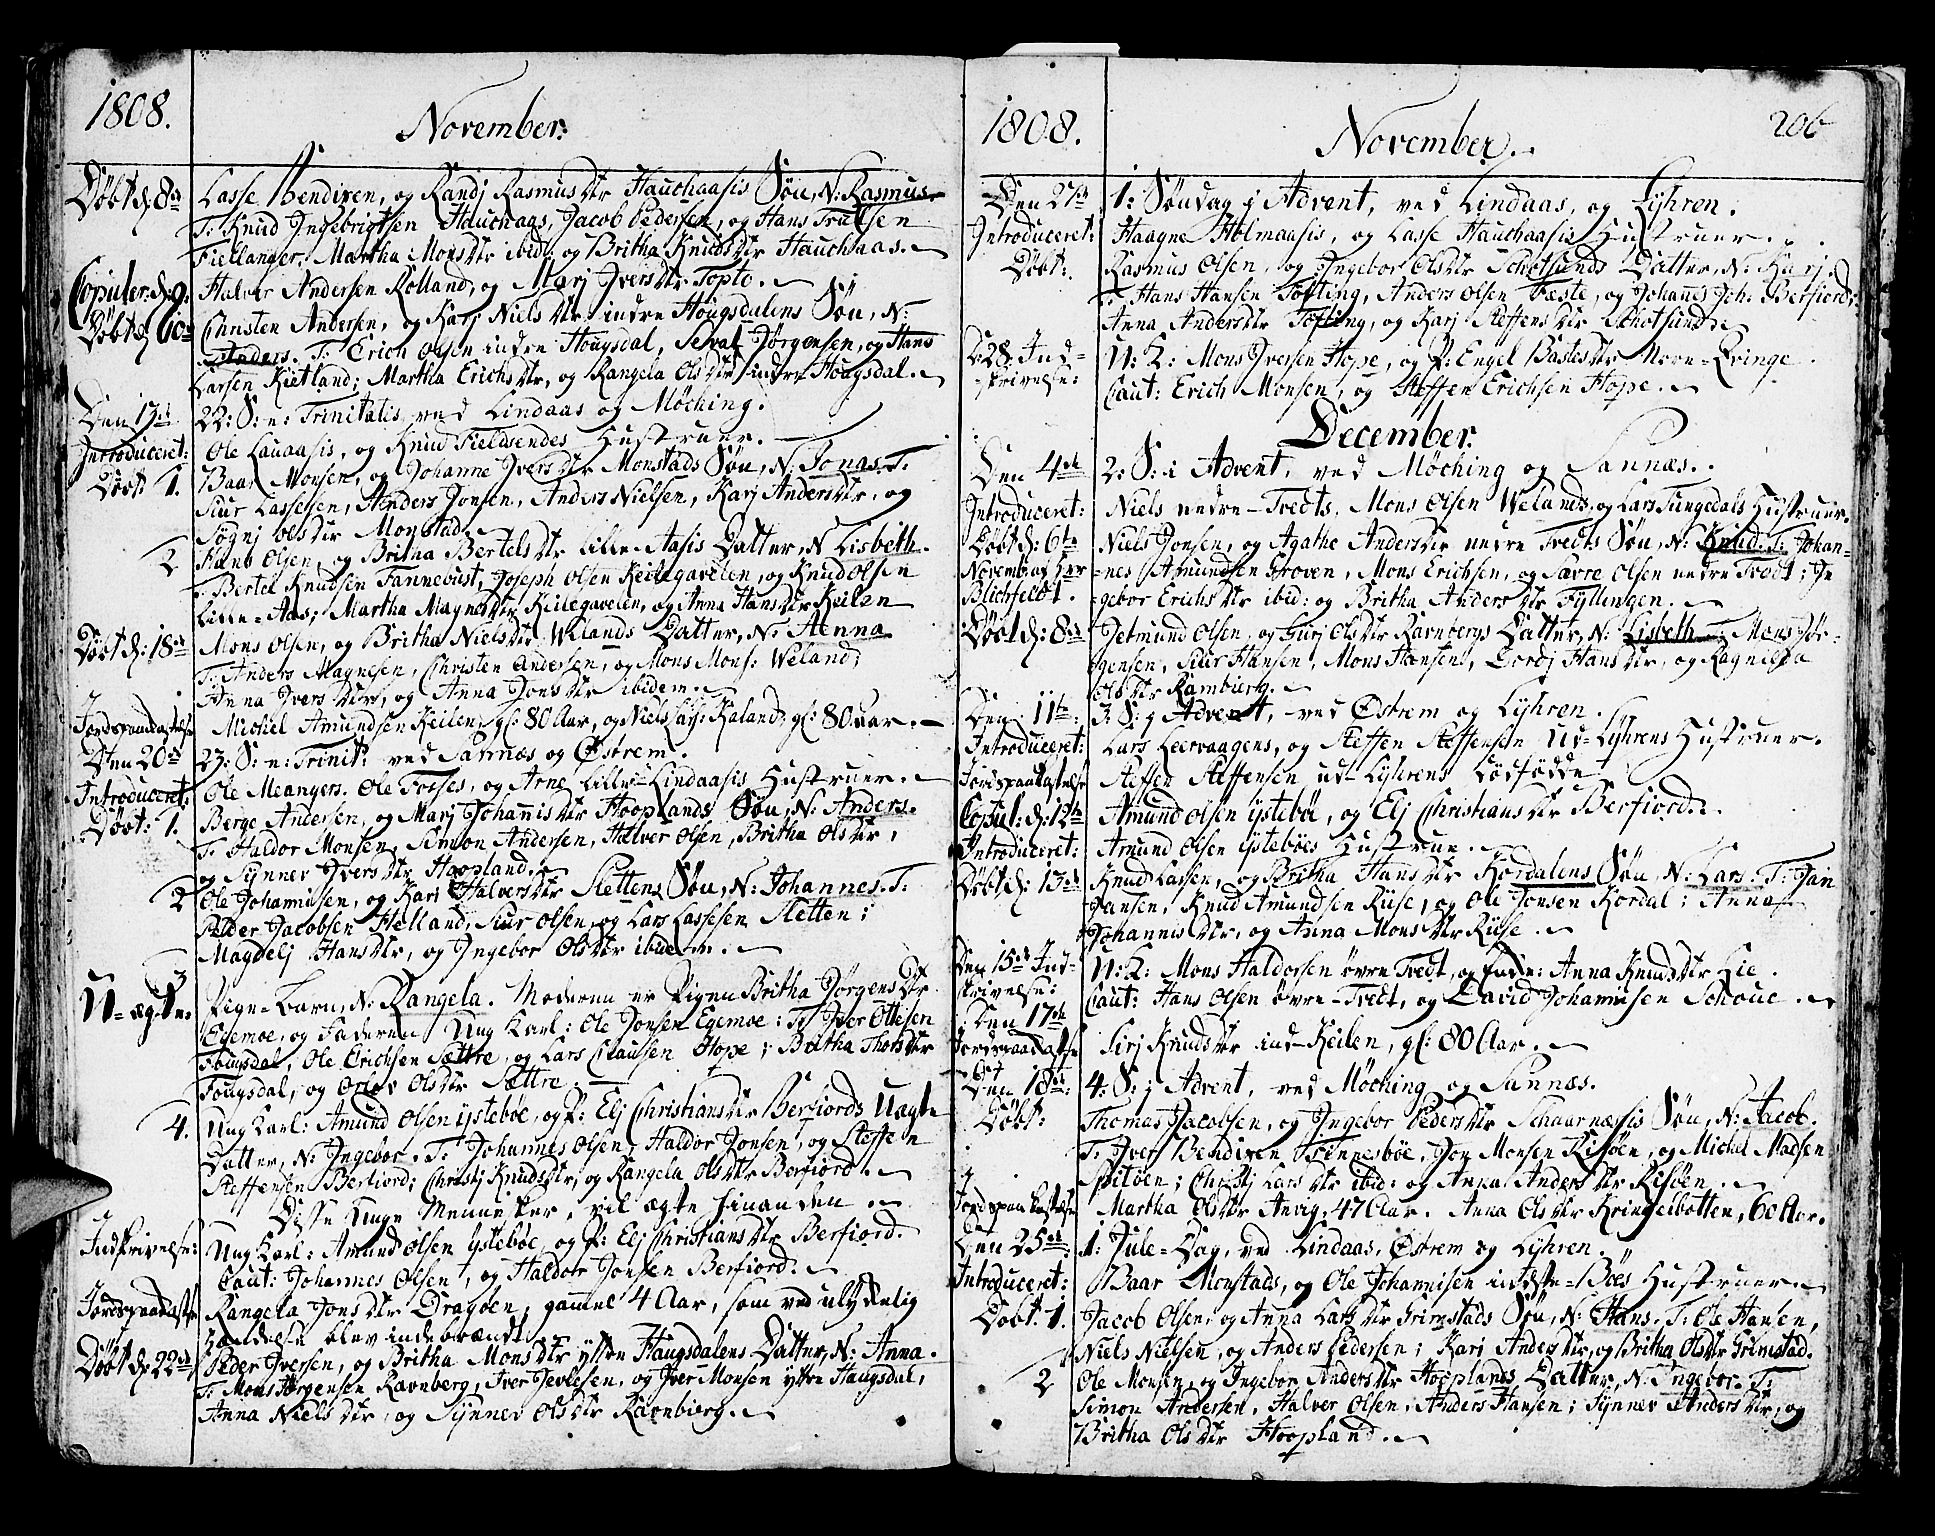 1808.
November:
Døbt d: 8de
Lasse Bendixen, og Randj Rasmusdtr Hauchaasis Søn, N: Rasmus.
T: Knud Ingebrigtsen Hauchaas, Jacob Pedersen, og Hans Trulsen
Fiellanger. Martha Monsdtr ibid: og Britha Knudsdtr Hauchaas.
Copuler: d: 9:
Halvor Andersen Rolland, og Marj Iversdtr Topto.
Døbt d: 10de
Christen Andersen, og Karj Nielsdtr indre Hougsdalens Søn, N:
Anders. T: Erich Olsen indre Hougsdal, Sevat Jørgensen, og Hans
Larsen Kietland; Martha Erichsdtr, og Rangela Olsdtr indre Hougsdal.
Den 13de
22: S: n: Trinitatis, ved Lindaas og Møching.
Introduceret:
Ole Lauaasis, og Knud Fieldsendes Hustruer.
Døbt: 1.
Baar Monsen, og Johanne Iversdtr Monstads Søn, N: Jonas. T:
Siur Lassesen, Anders Jonsen, Anders Nielsen, Karj Andersdtr, og
Søgnj Olsdtr Monstad.
2
Hans Olsen, og Britha Bertelsdtr Lille-Aasis Datter, N: Lisbeth.
T: Bertel Knudsen Tannebust, Joseph Olsen Keilegavelen, og Knud Olsen
Lille-Aas; Martha Magnesdtr Keilegavelen, og Anna Hansdtr Keilen
Døbt d: 18de
Mons Olsen, og Britha Nielsdtr Welands Datter, N: Aenna
T: Anders Magnesen, Christen Andersen, og Mons Mons: Weland;
Anna Iversdtr, og Anna Jonsdtr ibidem.
Jordspaadkastelse
Michel Amundsen Keilen, gl: 80 Aar, og Niels Lars: Kaland, gl: 80 aar.
Den 20de
23: S: n: Trinit: ved Sannæs og Østrem.
Introduceret:
Ole Meangers. Ole Fosses, og Arne Lille-Lindaasis Hustruer.
Døbt: 1.
Berge Andersen, og Marj Johannisdtr Hooplands Søn, N: Anders.
T: Haldor Monsen, Simon Andersen, Halver Olsen, Britha Olsdtr,
og Synnev Iversdtr Hoopland.
2
Ole Johannissen, og Karj Halversdtr Slettens Søn, N: Johannes. T:
Peder Jacobsen Helland, Siur Olsen, og Lars Lassesen Sletten;
Magdelj Hansdtr, og Ingebor Olsdtr ibidem.
3
U-ægte.
Pige-Barn, N: Rangela. Moderen er Pigen Britha Jørgensdtr
Egemoe, og Faderen Ung Karl: Ole Jonsen Egemoe: T: Iver Ottesen
Fougsdal, Ole Erichsen Sættre, og Lars Claussen Hope; Britha Thorsdtr
Fougsdal, og Orlov Olsdtr Sættre.
4.
Ung Karl: Amund Olsen ystebøe, og P: Elj Christiansdtr Berfiords Uægte
Datter, N: Ingebor. T: Johannes Olsen, Haldor Jonsen, og Steffen
Steffensen Berfiord; Christj Knudsdtr, og Rangela Olsdtr Berfiord.
Disse Unge Mennisker, vil ægte hinanden.
Indskrivelse:
Ung Karl: Amund Olsen ystebøe, og P: Elj Christiansdtr Berfiord.
Caut: Johannes Olsen, og Haldor Jonsen Berfiord.
Jordspaadkastelse
Rangela Jonsdtr Dragøen, gammel 4 Aar, som ved ulykkelig
Hændelse blev indebrændt.
Døbt d: 22de
Peder Iversen, og Britha Monsdtr yttre Haugsdalens Datter, N: Anna.
T: Mons Jørgensen Ravnberg, Iver Jevlesen, og Iver Monsen yttre Haugsdal;
Anna Nielsdtr, og Synnev Olsdtr Ravnbierg.
1808.
November.
206
Den 27de
1: Søndag i Advent, ved Lindaas, og Lyhren.
Introduceret:
Haagne Holmaasis, og Lasse Hauchaasis Hustruer.
Døbt:
Rasmus Olsen, og Ingebor Olsdtr Schotsunds Datter, N: Karj.
T: Hans Hansen Tofting, Anders Olsen Fæste, og Johannes Joh: Berfiord;
Anna Andersdtr Tofting, og Karj Steffensdtr Schotsund.
D: 28. Ind-
skrivelse:
U: K: Mons Iversen Hope, og P: Engel Bastesdtr Norre-Qvinge.
Caut: Erich Monsen, og Steffen Erichsen Hope.
December.
Den 4de
2: S: i Advent, ved Møching og Sannæs.
Introduceret:
Niels nedre-Tvedts, Mons Olsen Welands, og Lars Tungedals Hustruer.
Døbt d: 6te
Novemb: af Her
Blichfeldt.
Niels Jonsen, og Agathe Andersdtr nedre Tvedts Søn, N: Knud. T: Johan-
nes Amundsen Groven, Mons Erichsen, og Sævre Olsen nedre Tvedt; In-
gebor Erichsdtr ibid: og Britha Andersdtr Fyllingen.
Døbt d: 8de
Jetmund Olsen, og Gurj Olsdtr Ravnbergs Datter, N: Lisbeth. T: Mons Jør-
gensen, Siur Hansen, Mons Hansen, Dordj Hansdtr, og Ragnilda
Olsdtr Rambierg.
Den 11te:
3: S: i Advent, ved Østrem og Lyhren.
Introduceret:
Lars Leervaagens, og Steffen Steffensen Ud-Lyhrens Hustruer.
Jordspaadkastelse
Steffen Steffensen ud-Lyhrens Dødfødde
Copul: d: 12te
Amund Olsen ystebøe, og Elj Christiansdtr Berfiord.
Introduceret:
Amund Olsen ystebøes Hustrue.
Døbt d: 13de
Knud Lassen, og Britha Hansdtr Kordalens Søn, N: Lars. T: Jan
Jansen, Knud Amundsen Riise, og Ole Jonsen Kordal; Anna
Johannisdtr, og Anna Monsdtr Riise.
Den 15de Ind-
skrivelse:
U: K: Mons Haldorsen øvre Tvedt, og Enke: Anna Knudsdtr Lie.
Caut: Hans Olsen øvre-Tvedt, og David Johannissen Schoue.
Den 17de
Jordspaadkastelse
Sirj Knudsdtr ind-Keilen, gl: 80 Aar.
Den 18de:
4: S: i Advent, ved Møching og Sannæs.
Døbt:
Thomas Jacobsen, og Ingebor Pedersdtr Schaarnæsis Søn, N: Jacob.
T: Iver Bendixen Finnesbøe, Jon Monsen Risøen, og Michel Madsen
Spitøen; Christj Larsdtr ibid: og Anna Andersdtr Risøen.
Jordspaadkastelse
Martha Olsdtr Anvig, 47 Aar. Anna Olsdtr Kringlebotten, 60 Aar.
Den 25de:
1: Jule-Dag, ved Lindaas, Østrem og Lyhren.
Introduceret:
Baar Monstads, og Ole Johannisen indste-Bøes Hustruer.
Døbt: 1.
Jacob Olsen, og Anna Larsdtr Grimstads Søn, N: Hans. T: Ole Hansen,
Niels Nielsen, og Anders Pedersen; Karj Andersdtr, og Britha Olsdtr Grimstad.
2
Ole Monsen, og Ingebor Andersdtr Hooplands Datter, N: Ingebor. T:
Simon Andersen, Halver Olsen, Anders Hansen; Synnev Andersdtr, og
Britha Olsdtr Hoopland.